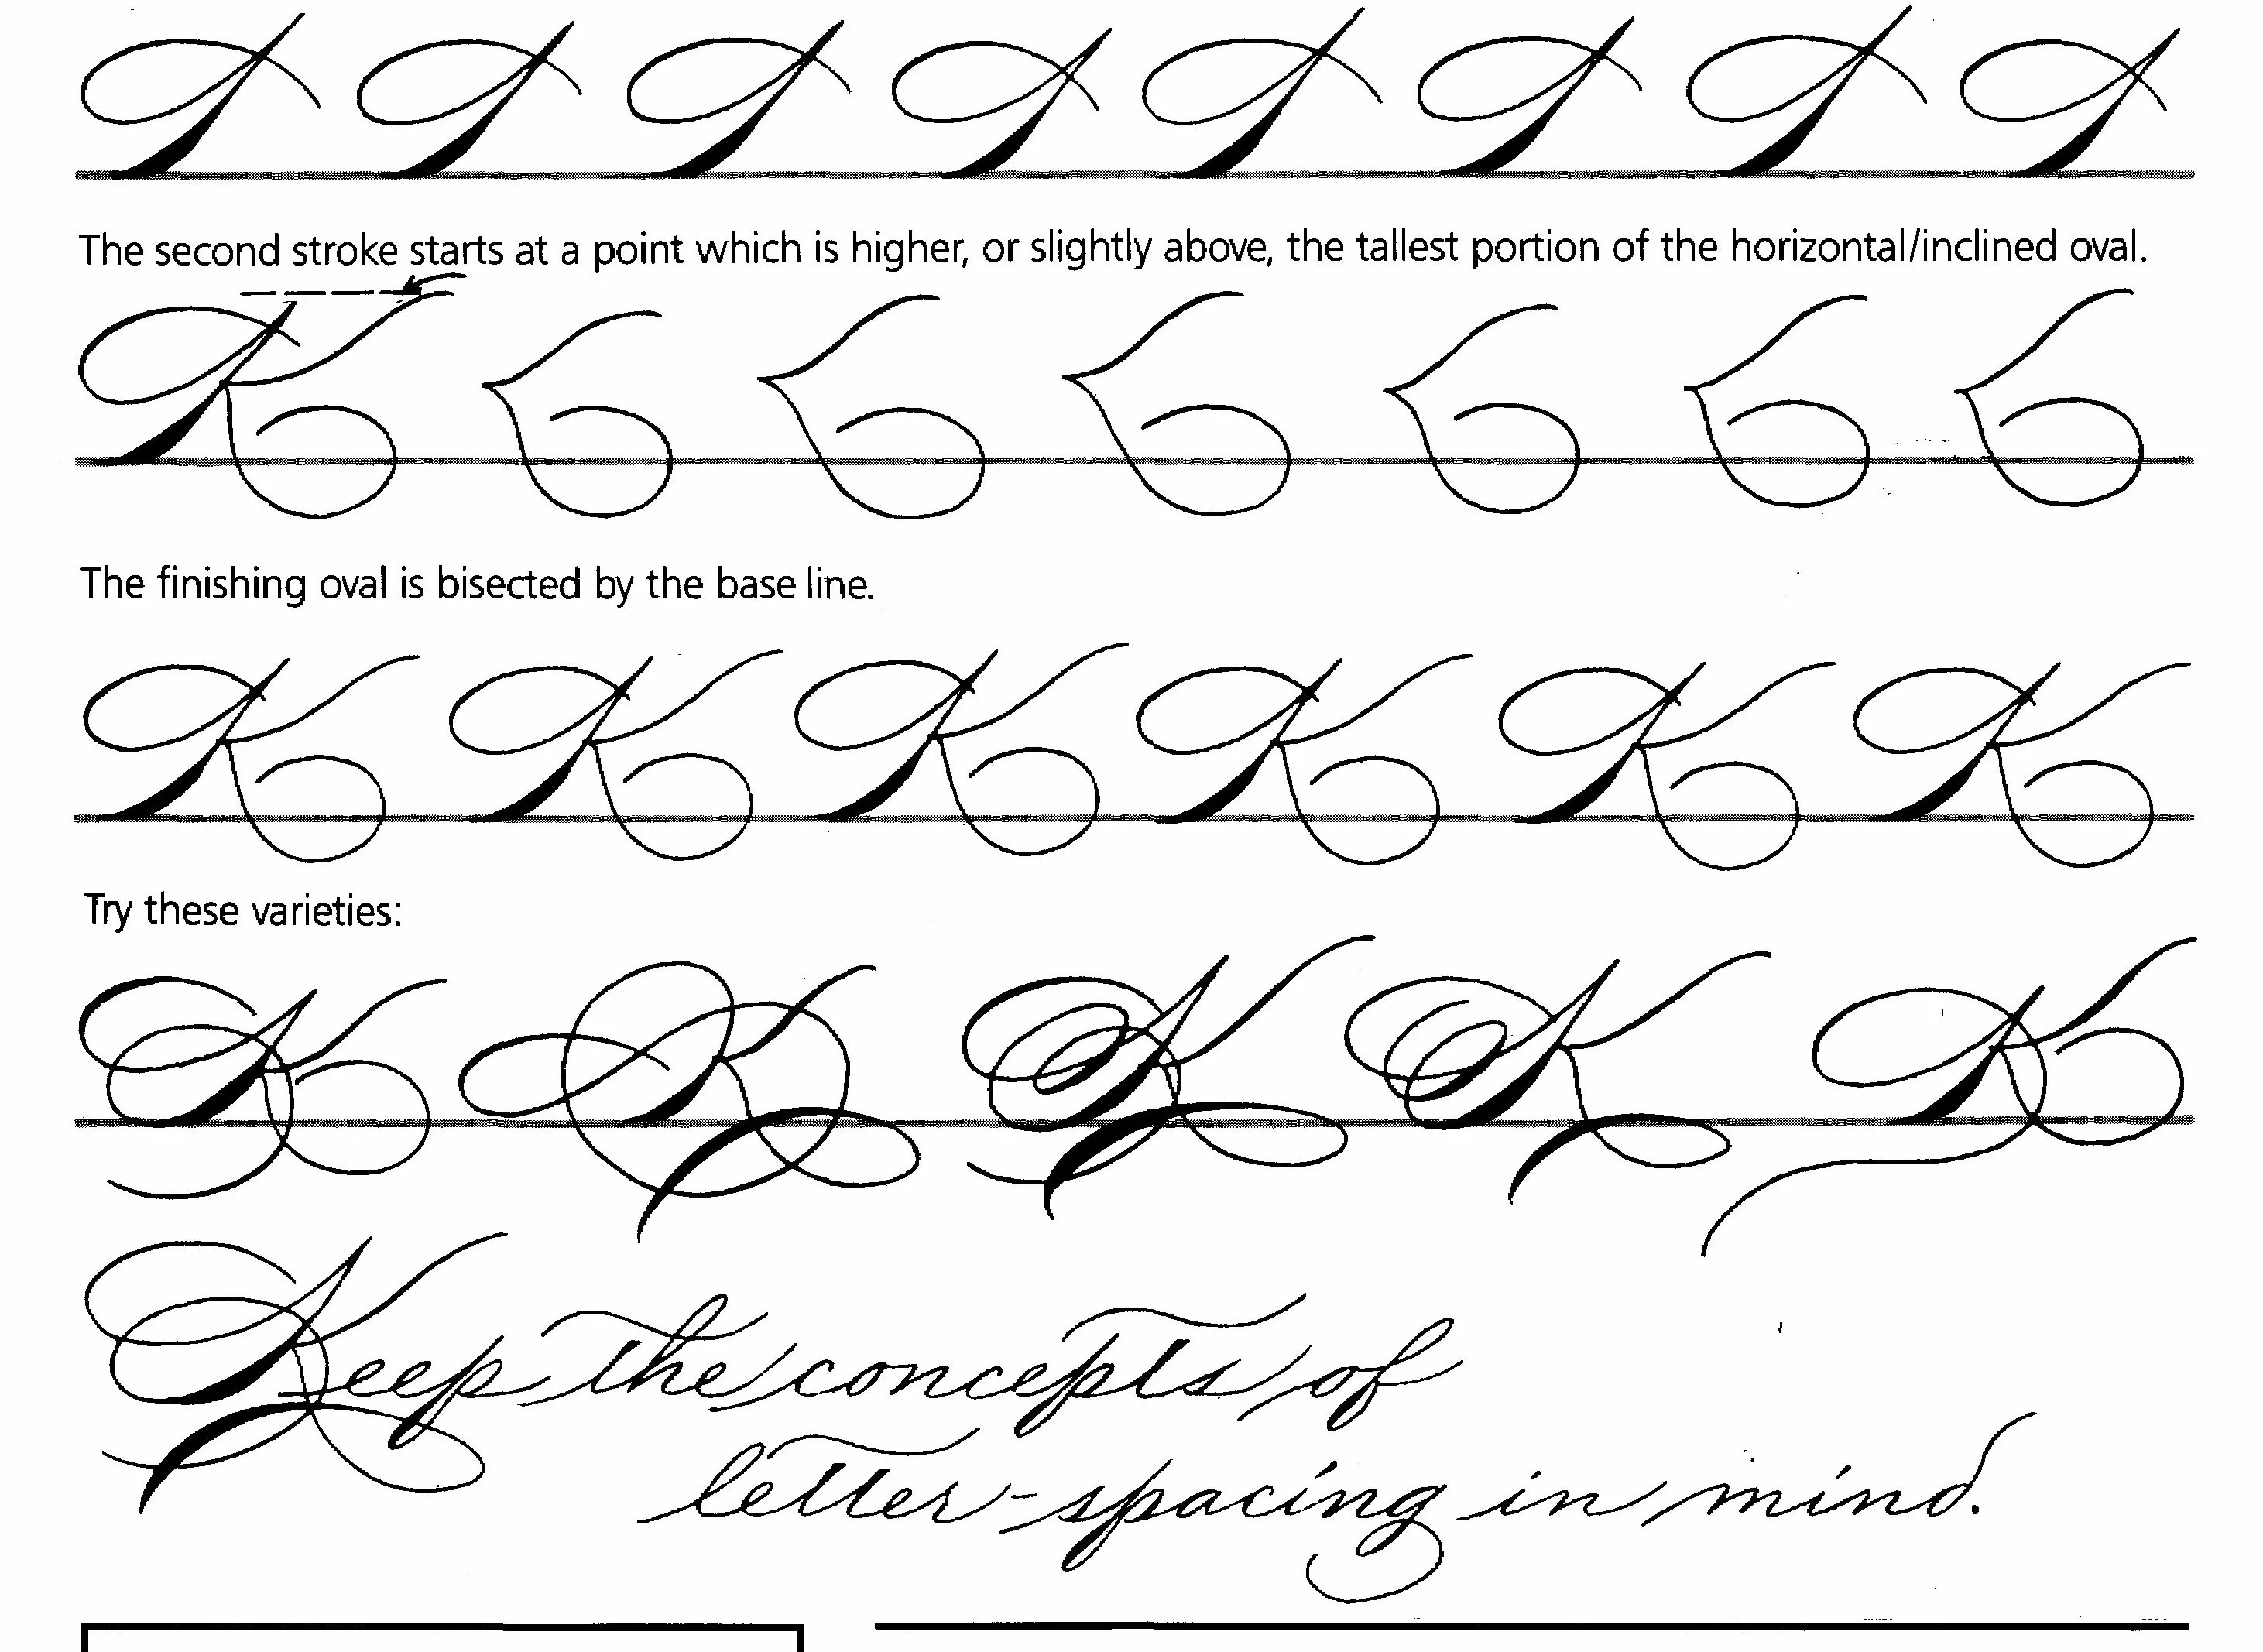 The second stroke starts at a point which is higher, or slightly above, the tallest portion of the horizontal/inclined oval.
K
The finishing oval is bisected by the base line.
K K K K K K
Try these varieties:
K K K K K
Keep the concepts of
letter-spacing in mind.